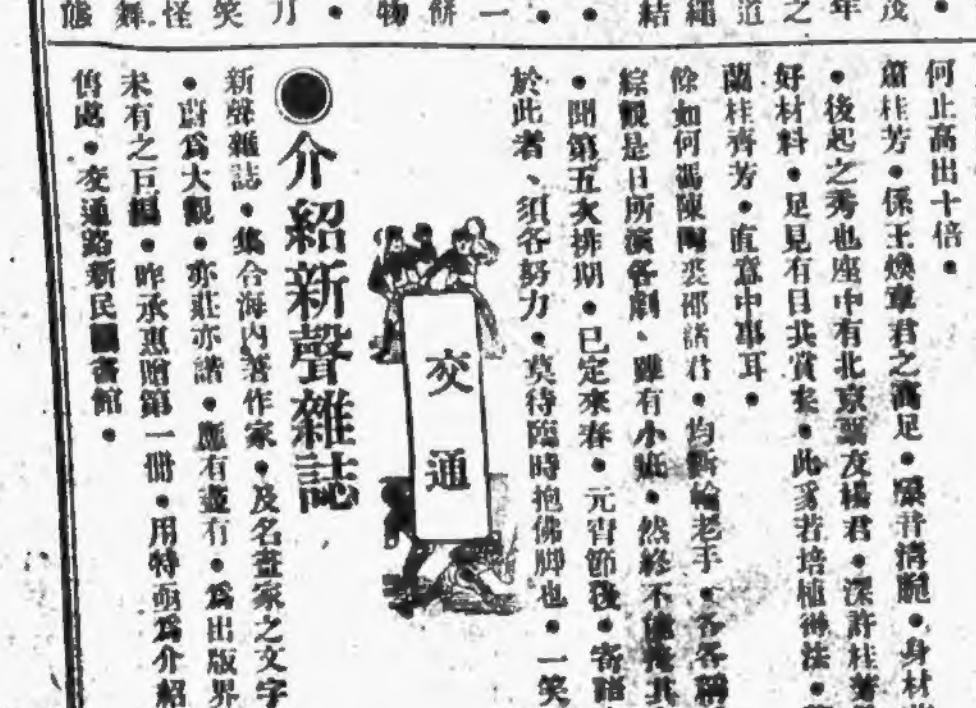 茂
年
之
道
繩
結
・一
餅
物
・
刀
笑
怪
舞
態
何止高出十倍・
蕭桂芳・係王煥章君之高足・嗓音清脆・身材
・後起之秀也座中有北京票友楊君・深許桂芳
好材料・足見有目共賞矣・此豸若培植得法・
蘭桂齊芳・直意中事耳・
餘如何馮陳陶裘邢諸君・均斲輪老手・各各稱
綜觀是日所演各劇、雖有小疵・然終不能掩其
・聞第五次排期・已定來春・元宵節後・寄語
於此者、須各努力・莫待臨時抱佛脚也・一笑
交通
●介紹新聲雜誌
新聲雜誌・集合海內著作家・及名畫家之文字
・蔚爲大觀・亦莊亦諧・應有盡有・爲出版界
未有之巨擘・昨承惠贈第一冊・用特亟爲介紹
售處・交通路新民圖書館・